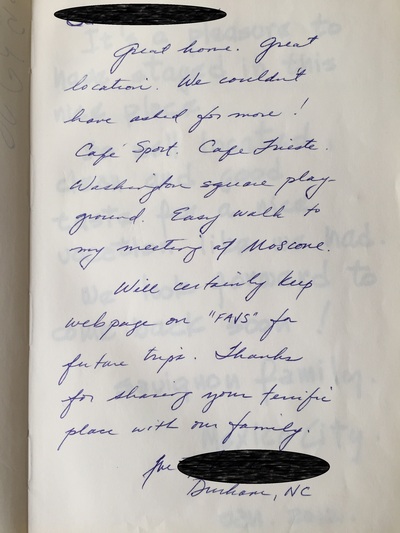 Great home. Great
location. We couldn't
have asked for more!
Café Sport. Cafe Trieste.
Washington square play-
ground. Easy walk to
my meeting at Moscone.
Will certainly keep
webpage on "FAVS" for
future trips. Thanks
for sharing your terrific
place with our family.
Joe
Durham, NC